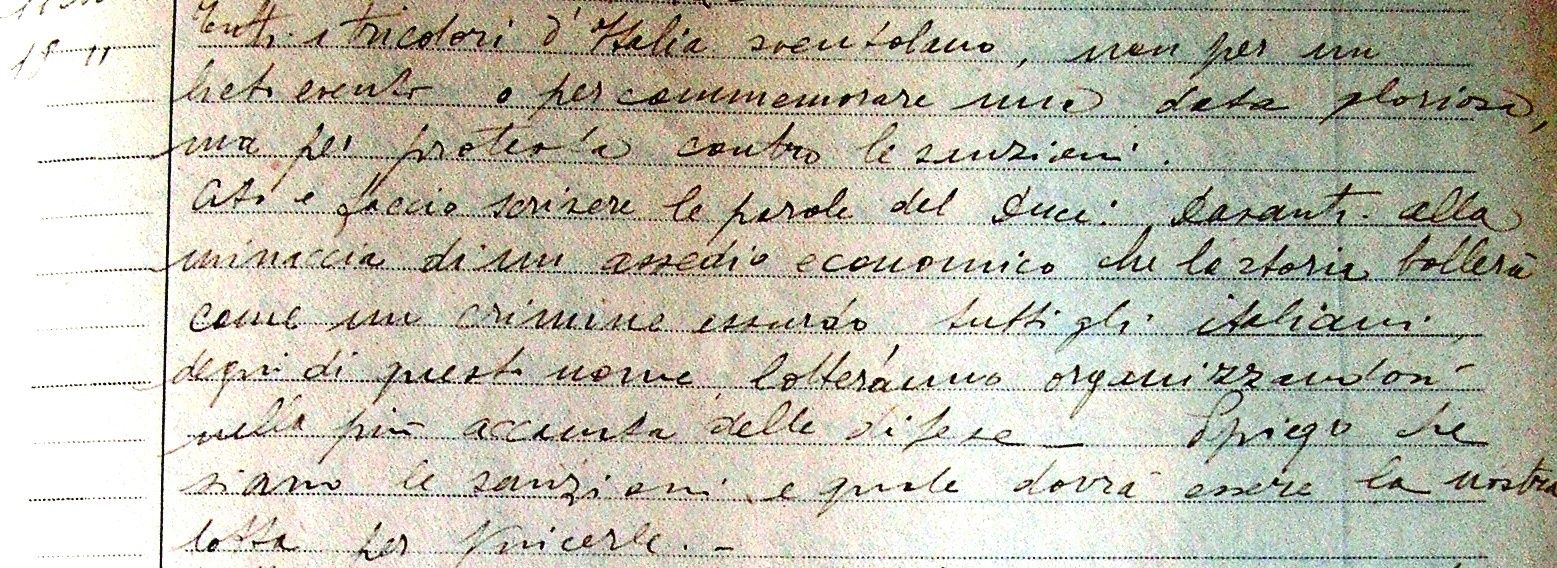 18-11
Tutti i tricolori d'Italia sventolano, non per un
lieto evento o per commemorare una data gloriosa,
ma per protesta contro le sanzioni.
e faccio scrivere le parole del Duce: Davanti alla
minaccia di un assedio economico che la storia bollerà
come un crimine assurdo tutti gli italiani
degni di questo nome lotteranno organizzandosi
nella più accanita delle difese — Spiego che
siano le sanzioni e quale dovrà essere la nostra
lotta per vincerle. -